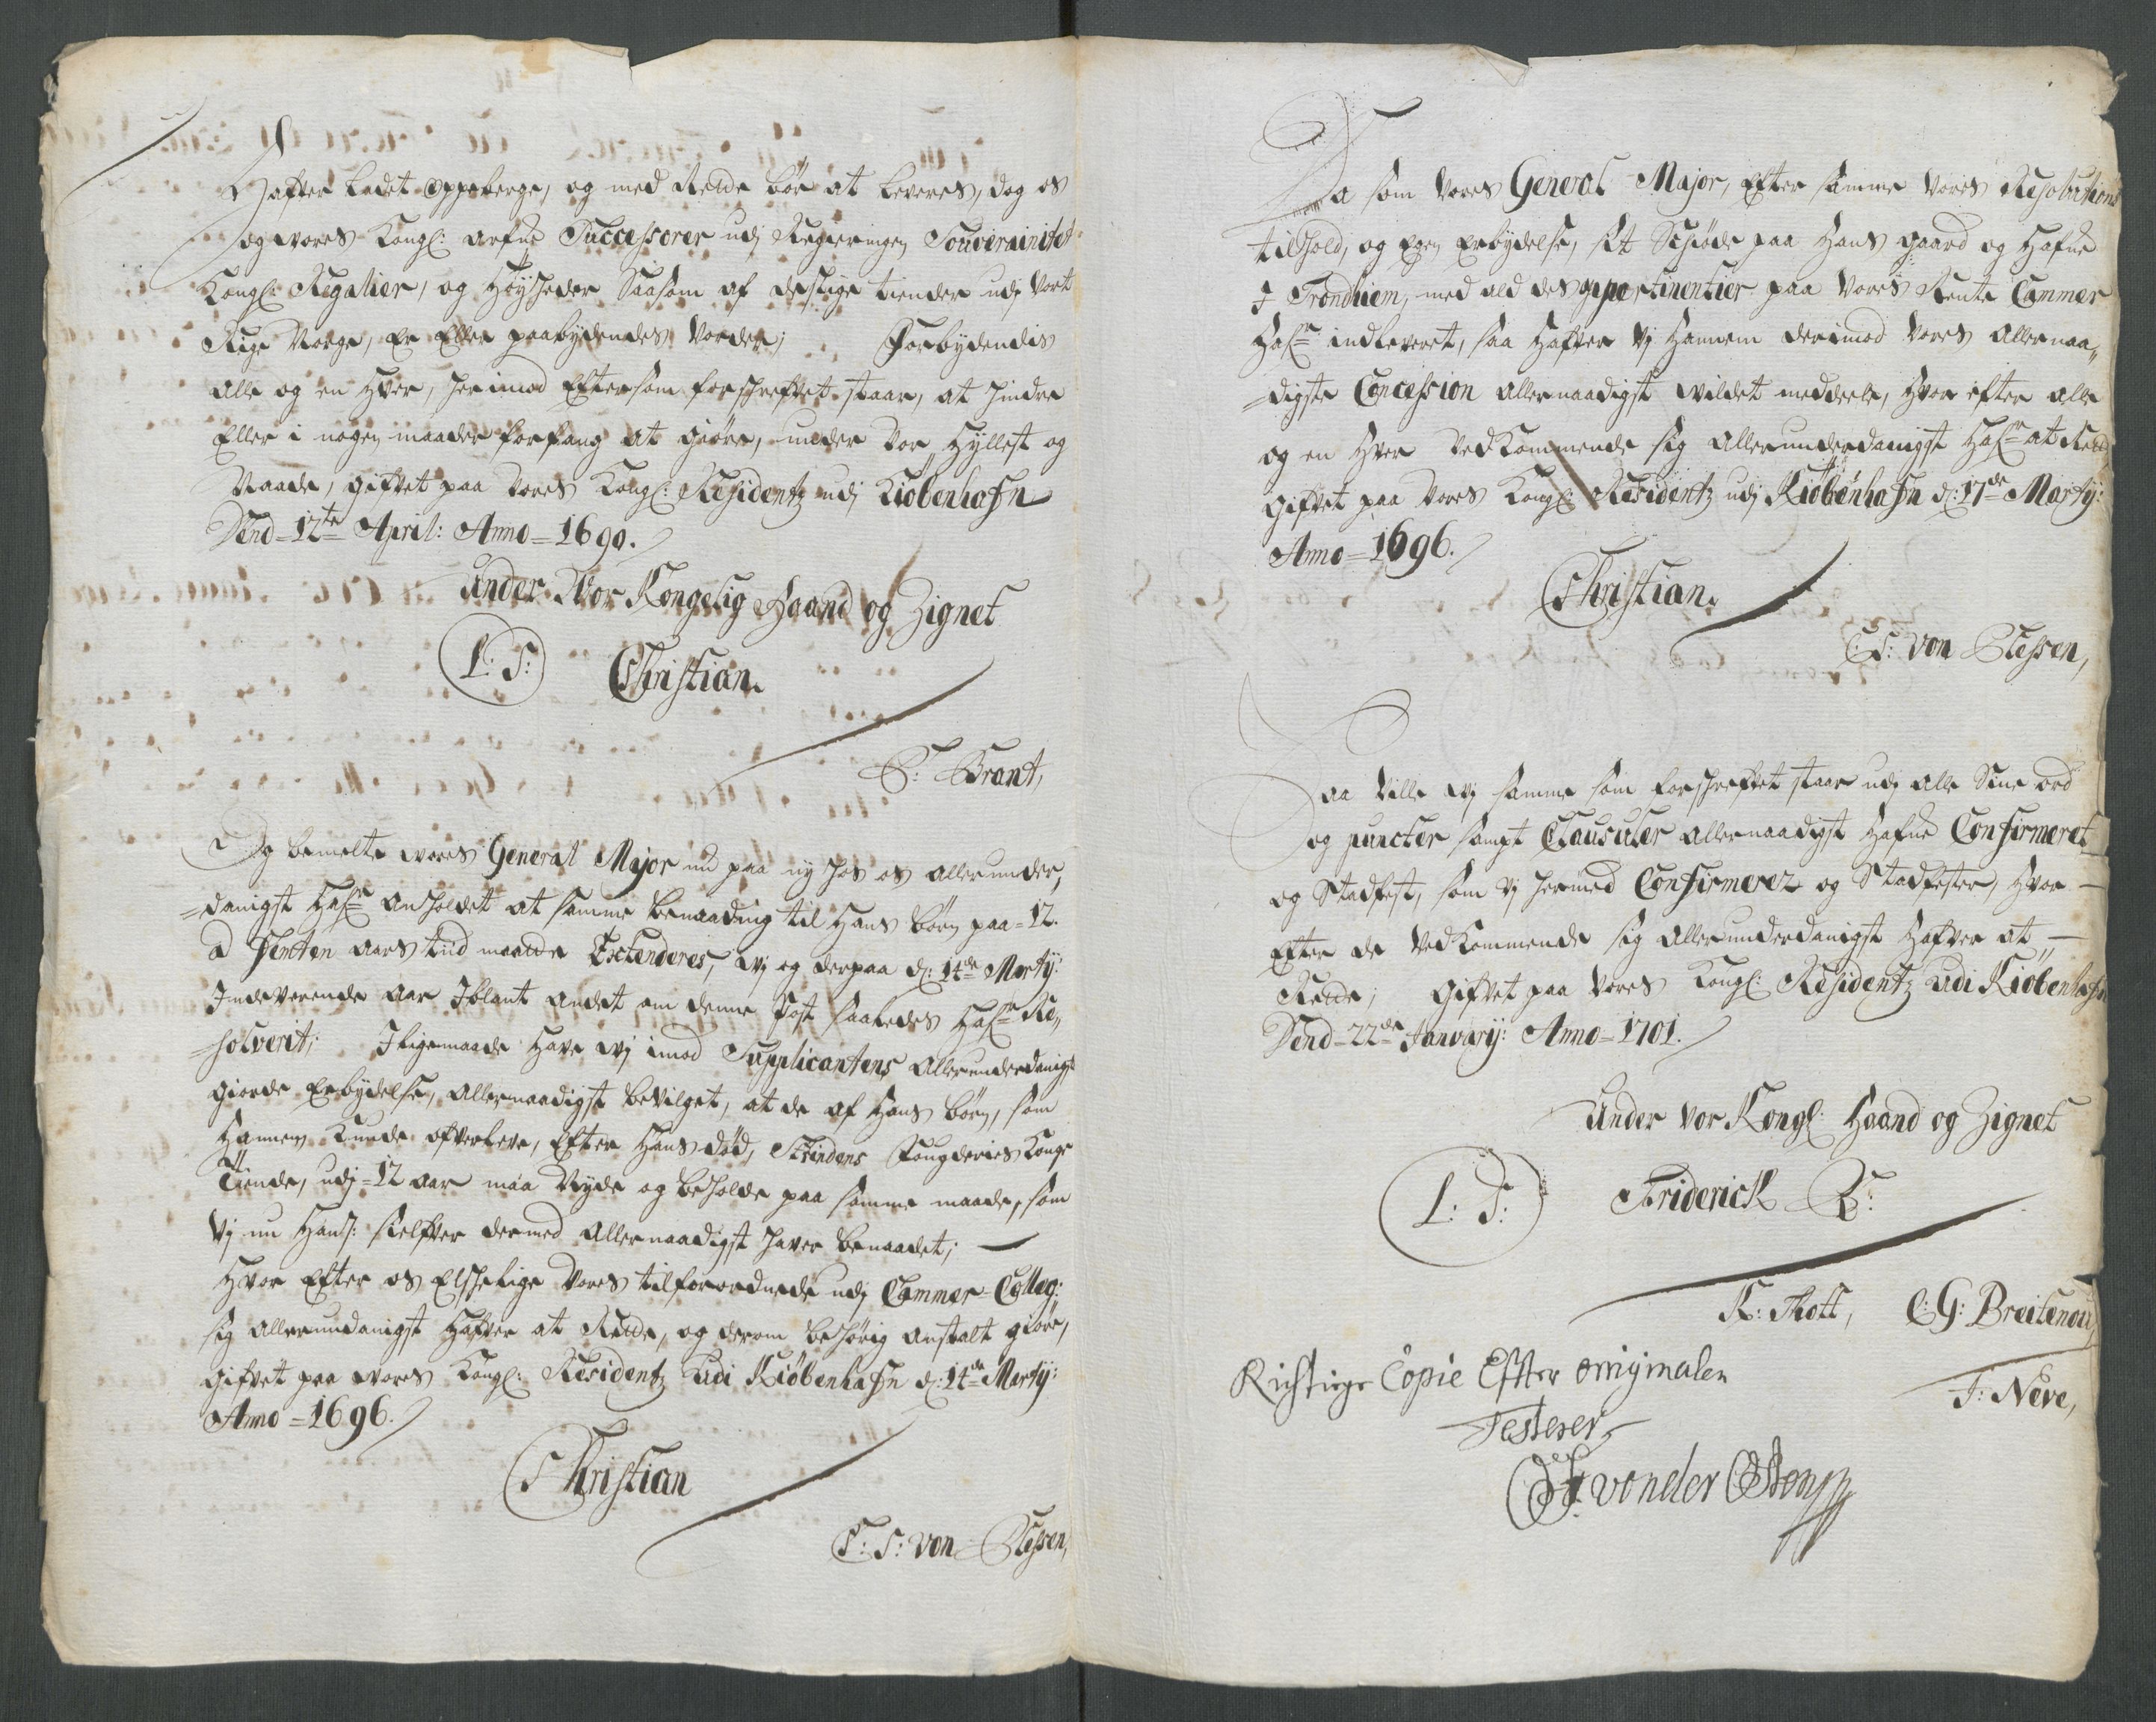 Hafver ladet oppeberge, og med Rette bör at leveres, dog os
og vores Kongl: arfve Successorer udj Regieringen Souverainitet
Kongl: Regalier, og Höyheder Saasom af deslige tiender udj Vort
Rige Norge, Er Eller paabydendes Vorder; Forbydendis
alle og en hver, herimod Eftersom forschrefvet staar, at hindre
Eller i nogen maader forfang at giöre, under Vor Hyllest og
Naade, Gifvet paa Vores Kongl: Residentz udj Kiöbenhafn
Dend 12te April: Anno = 1690.
Under Vor Kongelig Haand og Zignet
L: S: Christian.
P: Brant,
Og bemelte vores General Major nu paa ny hos os allerunder,
=danigst Hafr anholdet at samme benaading til Hans börn paa = 12.
a femten aars tiid maatte Extenderes, Wj og derpaa d: 14de Martij:
Indeverende aar Iblant andet om denne Post saaledes Hafr Re,,
=solverit; Iligemaade Have Wj imod Supplicantens allerunderdanigst
giorde Erbydelse, allernaadigst bevilget, at de af Hans börn, som
Hannem kunde ofverleve, Efter Hans död, Strindens Fougderies Konge
Tiende, udj = 12 aar maa Nyde og beholde paa samme maade, som
Vj nu Hans: selfver dermed allernaadigst haver benaadet;
Hvor Efter os Elschelige Vores tilforordnede udj Cammer-Colleg:
sig allerundanigst Hafver at Rette, og derom behörig anstalt giöre,
Gifvet paa vores Kongl: Residentz Udi Kiöbenhafn d: 14de Martij:
Anno = 1696.
Christian
C: S: von Plessen,
Da som Vores General Major, Efter samme Vores Resolutions
tilhold, og Egen Erbydelse, sit Schiöde paa Hans gaard og Hafve
I Trondhiem, med ald des appertinentier paa Vores Rente Cammer
Hafr indleveret, saa Hafver Vj Hannem derimod Vores allernaa,,
=digste Concession allernaadigst Vildet meddeele, Hvor efter alle
og en Hver Vedkommende sig allerunderdanigst Hafr at Rette,
Gifvet paa Vores Kongl: Residentz udj Kiöbenhafn d: 17de Martij:
Anno = 1696.
Christian.
C: S: von Plessen,
Saa Ville Wj samme som forschrefvet staar udj alle Sine ord
og puncter sampt Clausuler allernaadigst Hafve Confirmeret
og Stadfest, som Vj hermed Confirmerer og Stadfester, Hvor
Efter de Vedkommende sig allerunderdanigst Hafver at
Rette; Gifvet paa Vores Kongl: Residentz Udi Kiöbenhafn
Dend = 22de Januarij: Anno = 1701.
Under Vor Kongl: Haand og Zignet
L: S: Friderich R:
K: Thott, C: G: Breitenou,
J: Neve,
Richtige Copie Effter originalen
Testerer
von der Osten